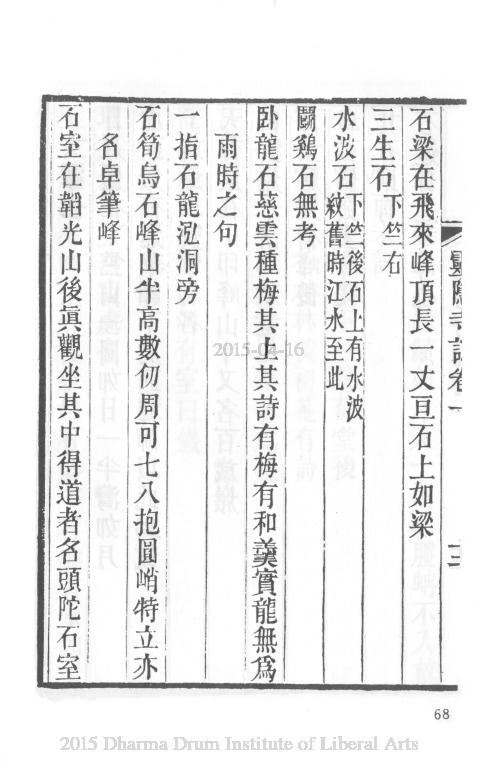 靈隱寺誌卷一
十二
石梁在飛來峰頂長一丈亘石上如梁
三生石下竺右
水波石下竺後石上有水波
紋舊時江水至此
鬭鷄石無考
卧龍石慈雲種梅其上其詩有梅有和羹實龍無爲
雨時之句
一指石龍泓洞旁
石筍烏石峰山半高數仞周可七八抱圓峭特立亦
名卓筆峰
石室在韜光山後眞觀坐其中得道者名頭陀石室
2015-04-16
68
2015 Dharma Drum Institute of Liberal Arts